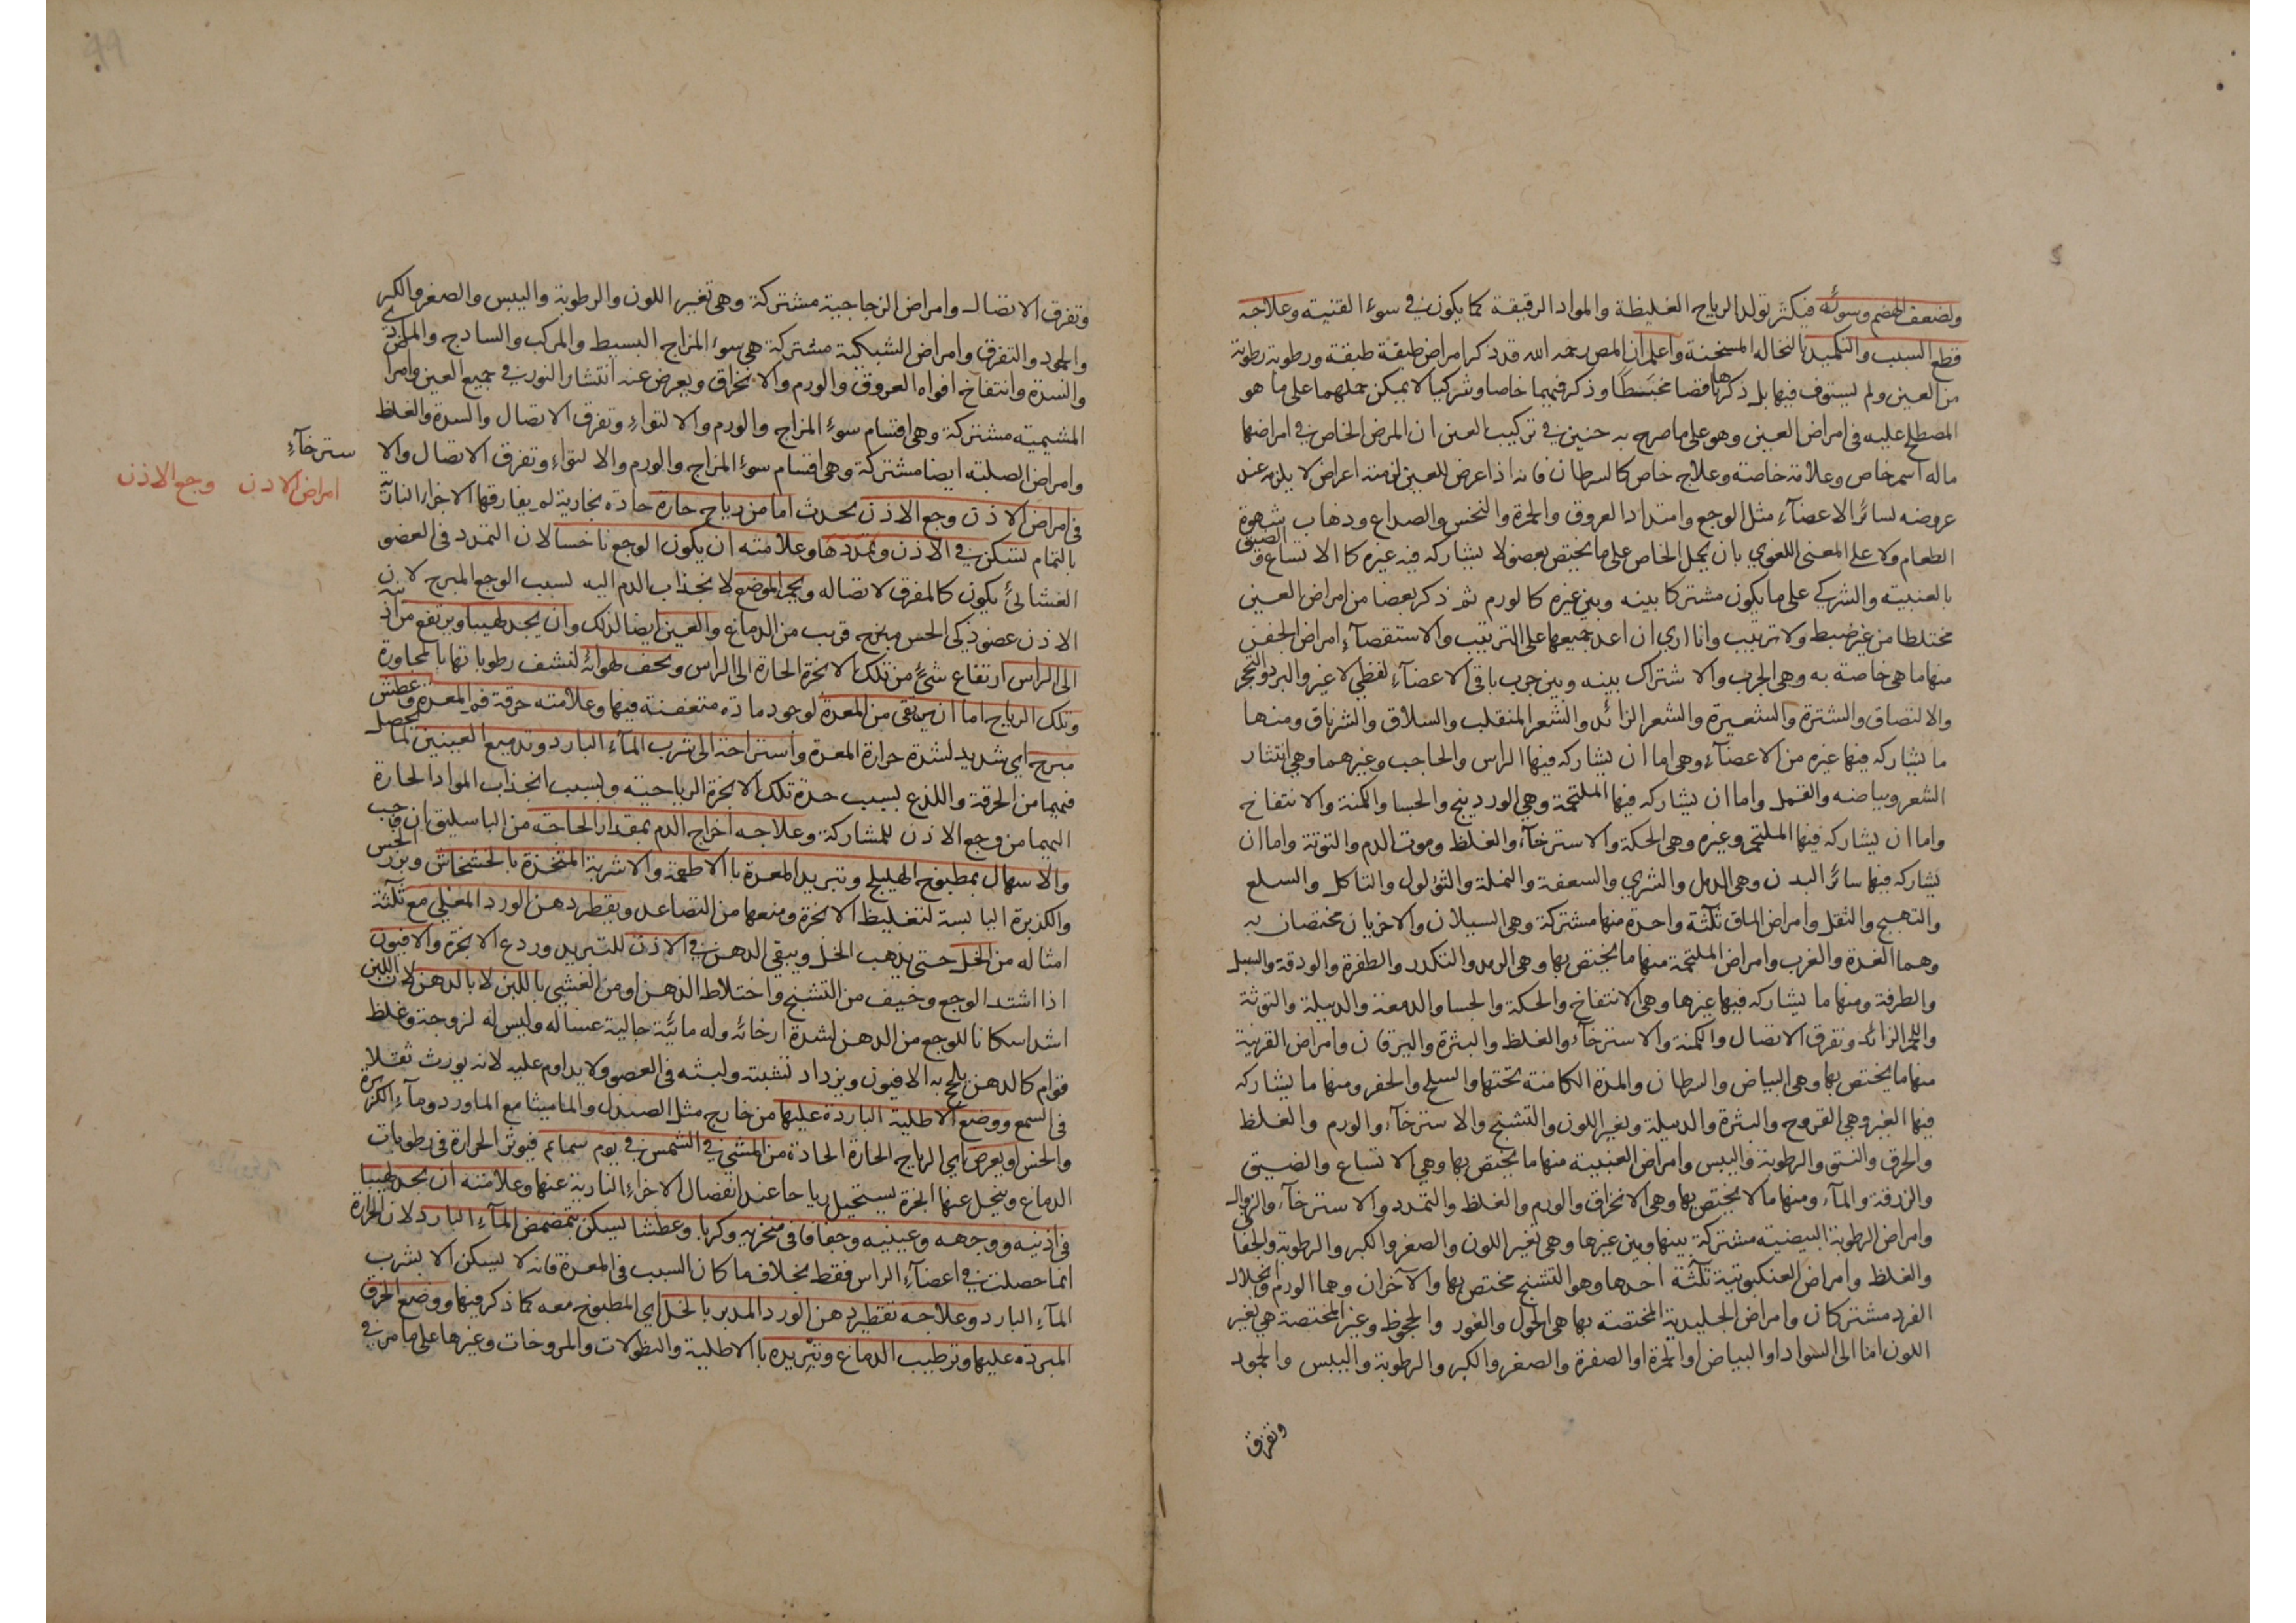 ولضعف الهضم وسوئه فيكثر تولد الرياح الغليظة والمواد الرقيقة كما يكون في سوء القنية وعلاجه
قطع السبب والتكميد بالنخالة المسخنة واعلم ان المص رحمه الله قد ذكر امراض طبقة طبقة ورطوبة رطوبة
من العين ولم يستوف فيها بل ذكرها وذكر فيهما خاصا وشركيا لا يمكن حملهما على ما هو
المصطلح عليه في امراض العين وهو على ما صرح به حنين في تركيب العين ان المرض الخاص في امراضها
ماله اسم خاص وعلامة خاصة وعلاج خاص كالسرطان فانه اذا عرض للعين لزمته اعراض لا يلزم عند
عروضه لسائر الاعضآء مثل الوجع وامتداد العروق والحمرة والنخس والصداع وذهاب شهوة
الطعام ولا على المعنى اللغوي بان يحمل الخاص على ما يختص بعضو لا يشاركه فيه غيره كالاتساع والضيق
بالعنبية والشركي على ما يكون مشتركا بينه وبين غيره كالورم ثم ذكر بعضا من امراض العين
مختلطا من غير ضبط ولا ترتيب وانا اري ان اعد جميعها على الترتيب والاستقصآء امراض الجفن
منها ما هي خاصة به وهي الجرب والاشتراك بينه وبين جرب باقي الاعضآء لفظي لا غير والبرد والتحجر
والالتصاق والشترة والشعيرة والشعر الزائد والشعر المنقلب والسلاق والشرناق ومنها
ما يشاركه فيها غيره من الاعضآء وهي اما ان يشاركه فيها الراس والحاجب وغيرهما وهي انتثار
الشعر وبياضه والقمل واما ان يشاركه فيها الملتحمة وهي الوردينج والجسا والكمنة والانتفاخ
واما ان يشاركه فيها الملتحم وغيره وهي الحكة والاسترخآء والغلظ وموت الدم والتوتة واما ان
يشاركه فيها سائر البدن وهي الدمل والشري والسعفة والنملة والثؤلول والتاكل والسلع
والتهيج والثقل وامراض الماق ثلثة واحدة منها مشتركة وهي السيلان والاخريان مختصان به
وهما الغدة والغرب وامراض الملتحمة منها ما يختص بها وهي الرمد والتكدر والظفرة والودقة والسبل
والطرفة ومنها ما يشاركه فيها غيرها وهي الانتفاخ والحكة والجسا والدمعة والدبيلة والتوثة
واللحم الزائد وتفرق الاتصال والكمنة والاسترخآء والغلظ والبثرة واليرقان وامراض القرنية
منها ما يختص بها وهي البياض والسرطان والمدة الكامنة تحتها والسلخ والحفر ومنها ما يشاركه
فيها الغير وهي القروح والبثرة والدبيلة وتغير اللون والتشنج والاسترخآء والورم والغلظ
والخرق والنتو والرطوبة واليبس وامراض العنبية منها ما يختص بها وهي الاتساع والضيق
والزرقة والمآء ومنها ما لا يختص بها وهي الانخراق والورم والغلظ والتمدد والاسترخآء والزوال
وامراض الرطوبة البيضية مشتركة بينها وبين غيرها وهي تغير اللون والصغر والكبر والرطوبة والجفاف
والغلظ وامراض العنكبوتية ثلثة احدها وهو التشنج مختص بها والآخران وهما الورم وانحلال
الفرد مشتركان وامراض الجليدية المختصة بها هي الحول والغور والجحوظ وغير المختصة هي تغير
اللون اما الى السواد او البياض او الحمرة او الصفرة والصغر والكبر والرطوبة واليبس والجمود
وتفرق
وتفرق الاتصال وامراض الزجاجية مشتركة وهي تغير اللون والرطوبة واليبس والصغر والكبر
والجمود والتفرق وامراض الشبكية مشتركة هي سوء المزاج البسيط والمركب والساذج والمادي
والسدة وانتفاخ افواه العروق والورم والانخراق ويعرض عنه انتشار النور في جميع العين وامراض
المشيمية مشتركة وهي اقسام سوء المزاج والورم والالتواء وتفرق الاتصال والسدة والغلظ
وامراض الصلبة ايضا مشتركة وهي اقسام سوء المزاج والورم والالتواء وتفرق الاتصال والا
سترخآء
امراض الاذن وجع الاذن
في امراض الاذن وجع الاذن يحدث اما من رياح حارة حادة بخارية لم يفارقها الاجزاء النارية
بالتمام تسكن في الاذن وتمددها وعلامته ان يكون الوجع ناخسا لان التمدد في العضو
الغشائي يكون كالمفرق لاتصاله ويحمر الموضع لانجذاب الدم اليه لسبب الوجع المبرح لان
الاذن عضو ذكي الحس قريب من الدماغ والعين ايضا لذلك وان يجد لهيبا ويرتفع من اذنه
الى الراس ارتفاع شيء من تلك الابخرة الحارة الى الراس ويجف لهواته لنشف رطوباتها بالمجاورة
وتلك الرياح اما ان يرتقي من المعدة لوجود مادة متعفنة فيها وعلامته حرقة فم المعدة وعطش
مبرح اي شديد لشدة حرارة المعدة واستراحة الى شرب المآء البارد وتدميع العينين لما يحصل
فيهما من الحرقة واللذع بسبب حدة تلك الابخرة الرياحية ولسبب انجذاب المواد الحارة
اليهما من وجع الاذن للمشاركة وعلاجه اخراج الدم بمقدار الحاجة من الباسليق ان وجب
والاسهال بمطبوخ الهليلج وتبريد المعدة بالاطعمة والاشربة المتخذة بالخشخاش وبزر الخس
والكزبرة اليابسة لتغليظ الابخرة ومنعها من التصاعد ويقطر دهن الورد المغلي مع ثلثة
امثاله من الخل حتى يذهب الخل ويبقي الدهن في الاذن للتبريد وردع الابخرة والافيون
اذا اشتد الوجع وخيف من التشنج واختلاط الذهن او من الغشي باللبن لا بالدهن لان اللبن
اشد اسكانا للوجع من الدهن لشدة ارخائه وله مائية جالية غسالة وليس له لزوجة وغلظ
قوام كالدهن يلحج به الافيون ويزداد تشبثه ولبثه في العضو ولا يداوم عليه لانه يورث ثقلا
في السمع ووضع الاطلية الباردة عليها من خارج مثل الصندل والماميثا مع الماورد ومآء الكزبرة
والخس او يعرض اي الرياح الحارة الحادة من المشي في الشمس في يوم سمائم فيؤثر الحرارة في رطوبات
الدماغ وينحل عنها ابخرة يستحيل رياحا عند انفصال الاجزاء النارية عنها وعلامته ان يجد لهيبا
في اذنيه ووجهه وعينيه وجفافا في منخريه وكربا وعطشا ليسكن بتمضمض المآء البارد لان الحرارة
انما حصلت في اعضآء الراس فقط بخلاف ما كان السبب في المعدة فانه لا يسكن الا بشرب
المآء البارد وعلاجه تقطير دهن الورد المدبر بالخل اي المطبوخ معه كما ذكر فيها ووضع الخرق
المبردة عليها وترطيب الدماغ وتبريده بالاطلية والنطولات والمروخات وغيرها على ما مر في